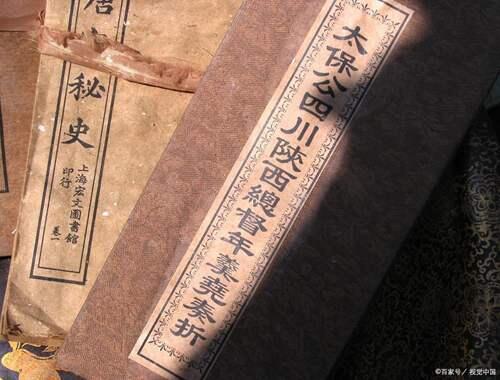 太保公四川陝西總督年羹堯奏折
秘史
上海宏文圖書館
印行
卷一
©百家号/视觉中国